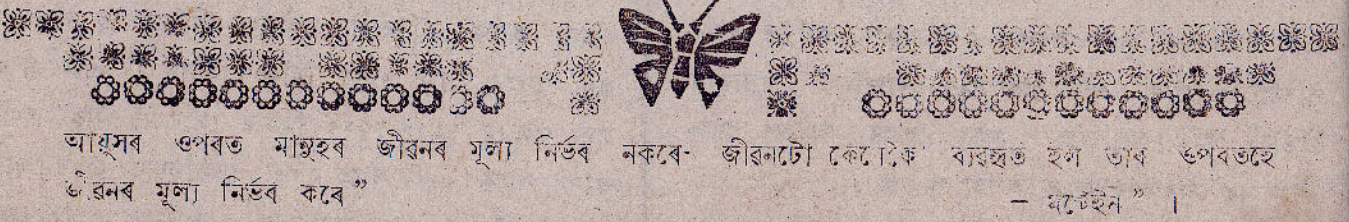 আয়ুসৰ ওপৰত মানুহৰ জীৱনৰ মূল্য নিৰ্ভৰ নকৰে- জীৱনটো কেনেকৈ ব্যৱহৃত হল তাৰ ওপৰতহে
জীৱনৰ মূল্য নিৰ্ভৰ কৰে ”
– মণ্টেইন ” ।